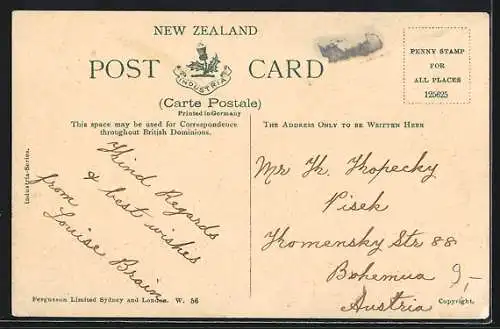 NEW ZEALAND
POST CARD
INDUSTRIA
(Carte Postale)
Printed in Germany
PENNY STAMP
FOR
ALL PLACES
125625
This space may be used for Correspondence
throughout British Dominions.
THE ADDRESS ONLY TO BE WRITTEN HERE
Industria-Series.
Kind Regards
& best wishes
from
Louise Brain
Mr Th. Khopecky
Pisek
Komensky Str 88
Bohemua
Austria
9,-
Fergusson Limited Sydney and London. W. 56
Copyright.